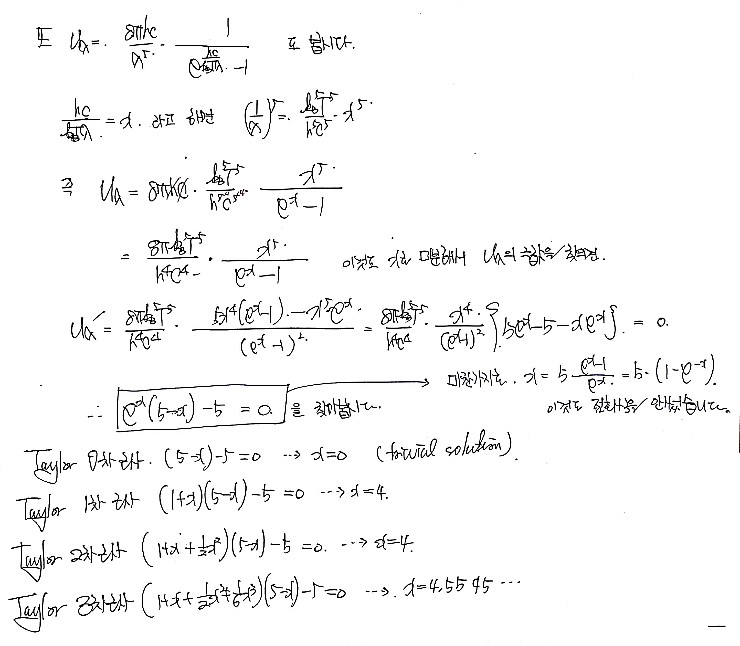 또 Uλ = 8πhc/λ⁵ · 1/(e^(hc/k_BTλ) - 1) 도 봅시다.
hc/k_BTλ = x. 라고 하면 (1/λ)⁵ = k_B⁵T⁵/h⁵c⁵ · x⁵.
즉 Uλ = 8πhc · k_B⁵T⁵/h⁵c⁵ · x⁵/(e^x - 1)
= 8πk_B⁵T⁵/h⁴c⁴ · x⁵/(e^x - 1) 이것도 x로 미분해서 Uλ의 극값을 찾으면.
Uλ' = 8πk_B⁵T⁵/h⁴c⁴ · (5x⁴(e^x - 1) - x⁵e^x)/(e^x - 1)² = 8πk_B⁵T⁵/h⁴c⁴ · x⁴/(e^x - 1)² {5e^x - 5 - xe^x} = 0.
∴ e^x(5-x) - 5 = 0 을 찾아봅시다. → 마찬가지로. x = 5 (e^x - 1)/e^x = 5·(1 - e^-x).
이것도
Taylor 0차근사. (5-x) - 5 = 0 ⋯→ x = 0 (trivial solution).
Taylor 1차근사 (1+x)(5-x) - 5 = 0 ⋯→ x = 4.
Taylor 2차근사 (1+x+½x²)(5-x) - 5 = 0. ⋯→ x = 4.
Taylor 3차근사 (1+x+½x²+⅙x³)(5-x) - 5 = 0 ⋯→. x = 4.5595 ⋯